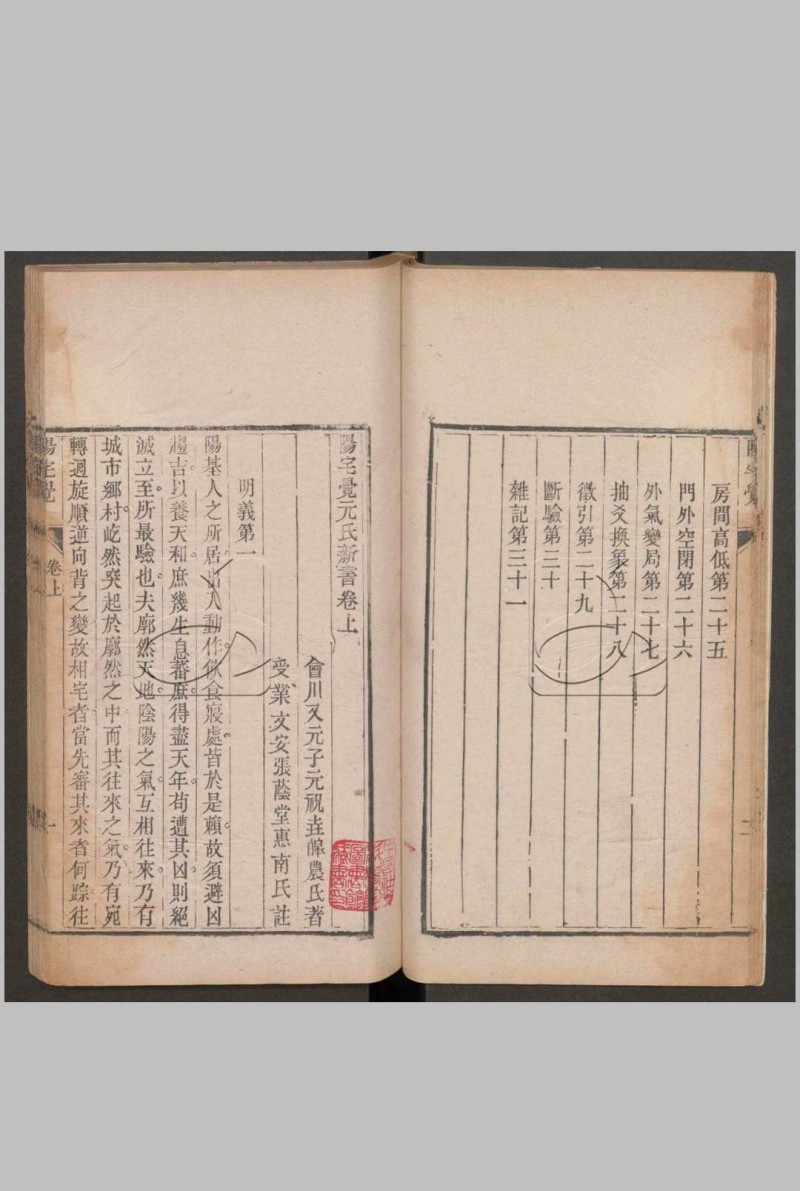 房間高低第二十五
門外空閉第二十六
外氣變局第二十七
抽爻換象第二十八
徵引第二十九
斷驗第三十
雜記第三十一
陽宅覺元氏新書卷上
會川又元子元祝垚皥農氏著
受業文安張蔭堂惠南氏註
明義第一
陽基人之所居出入動作飲食寢處皆於是賴故須避凶
趨吉以養天和庶幾生息蕃庶得盡天年苟遭其凶則絕
滅立至所最驗也夫廓然天地陰陽之氣互相往來乃有
城市鄉村屹然突起於廓然之中而其往來之氣乃有宛
轉迴旋順逆向背之變故相宅者當先審其來者何踪往
陽宅覺
卷上
一